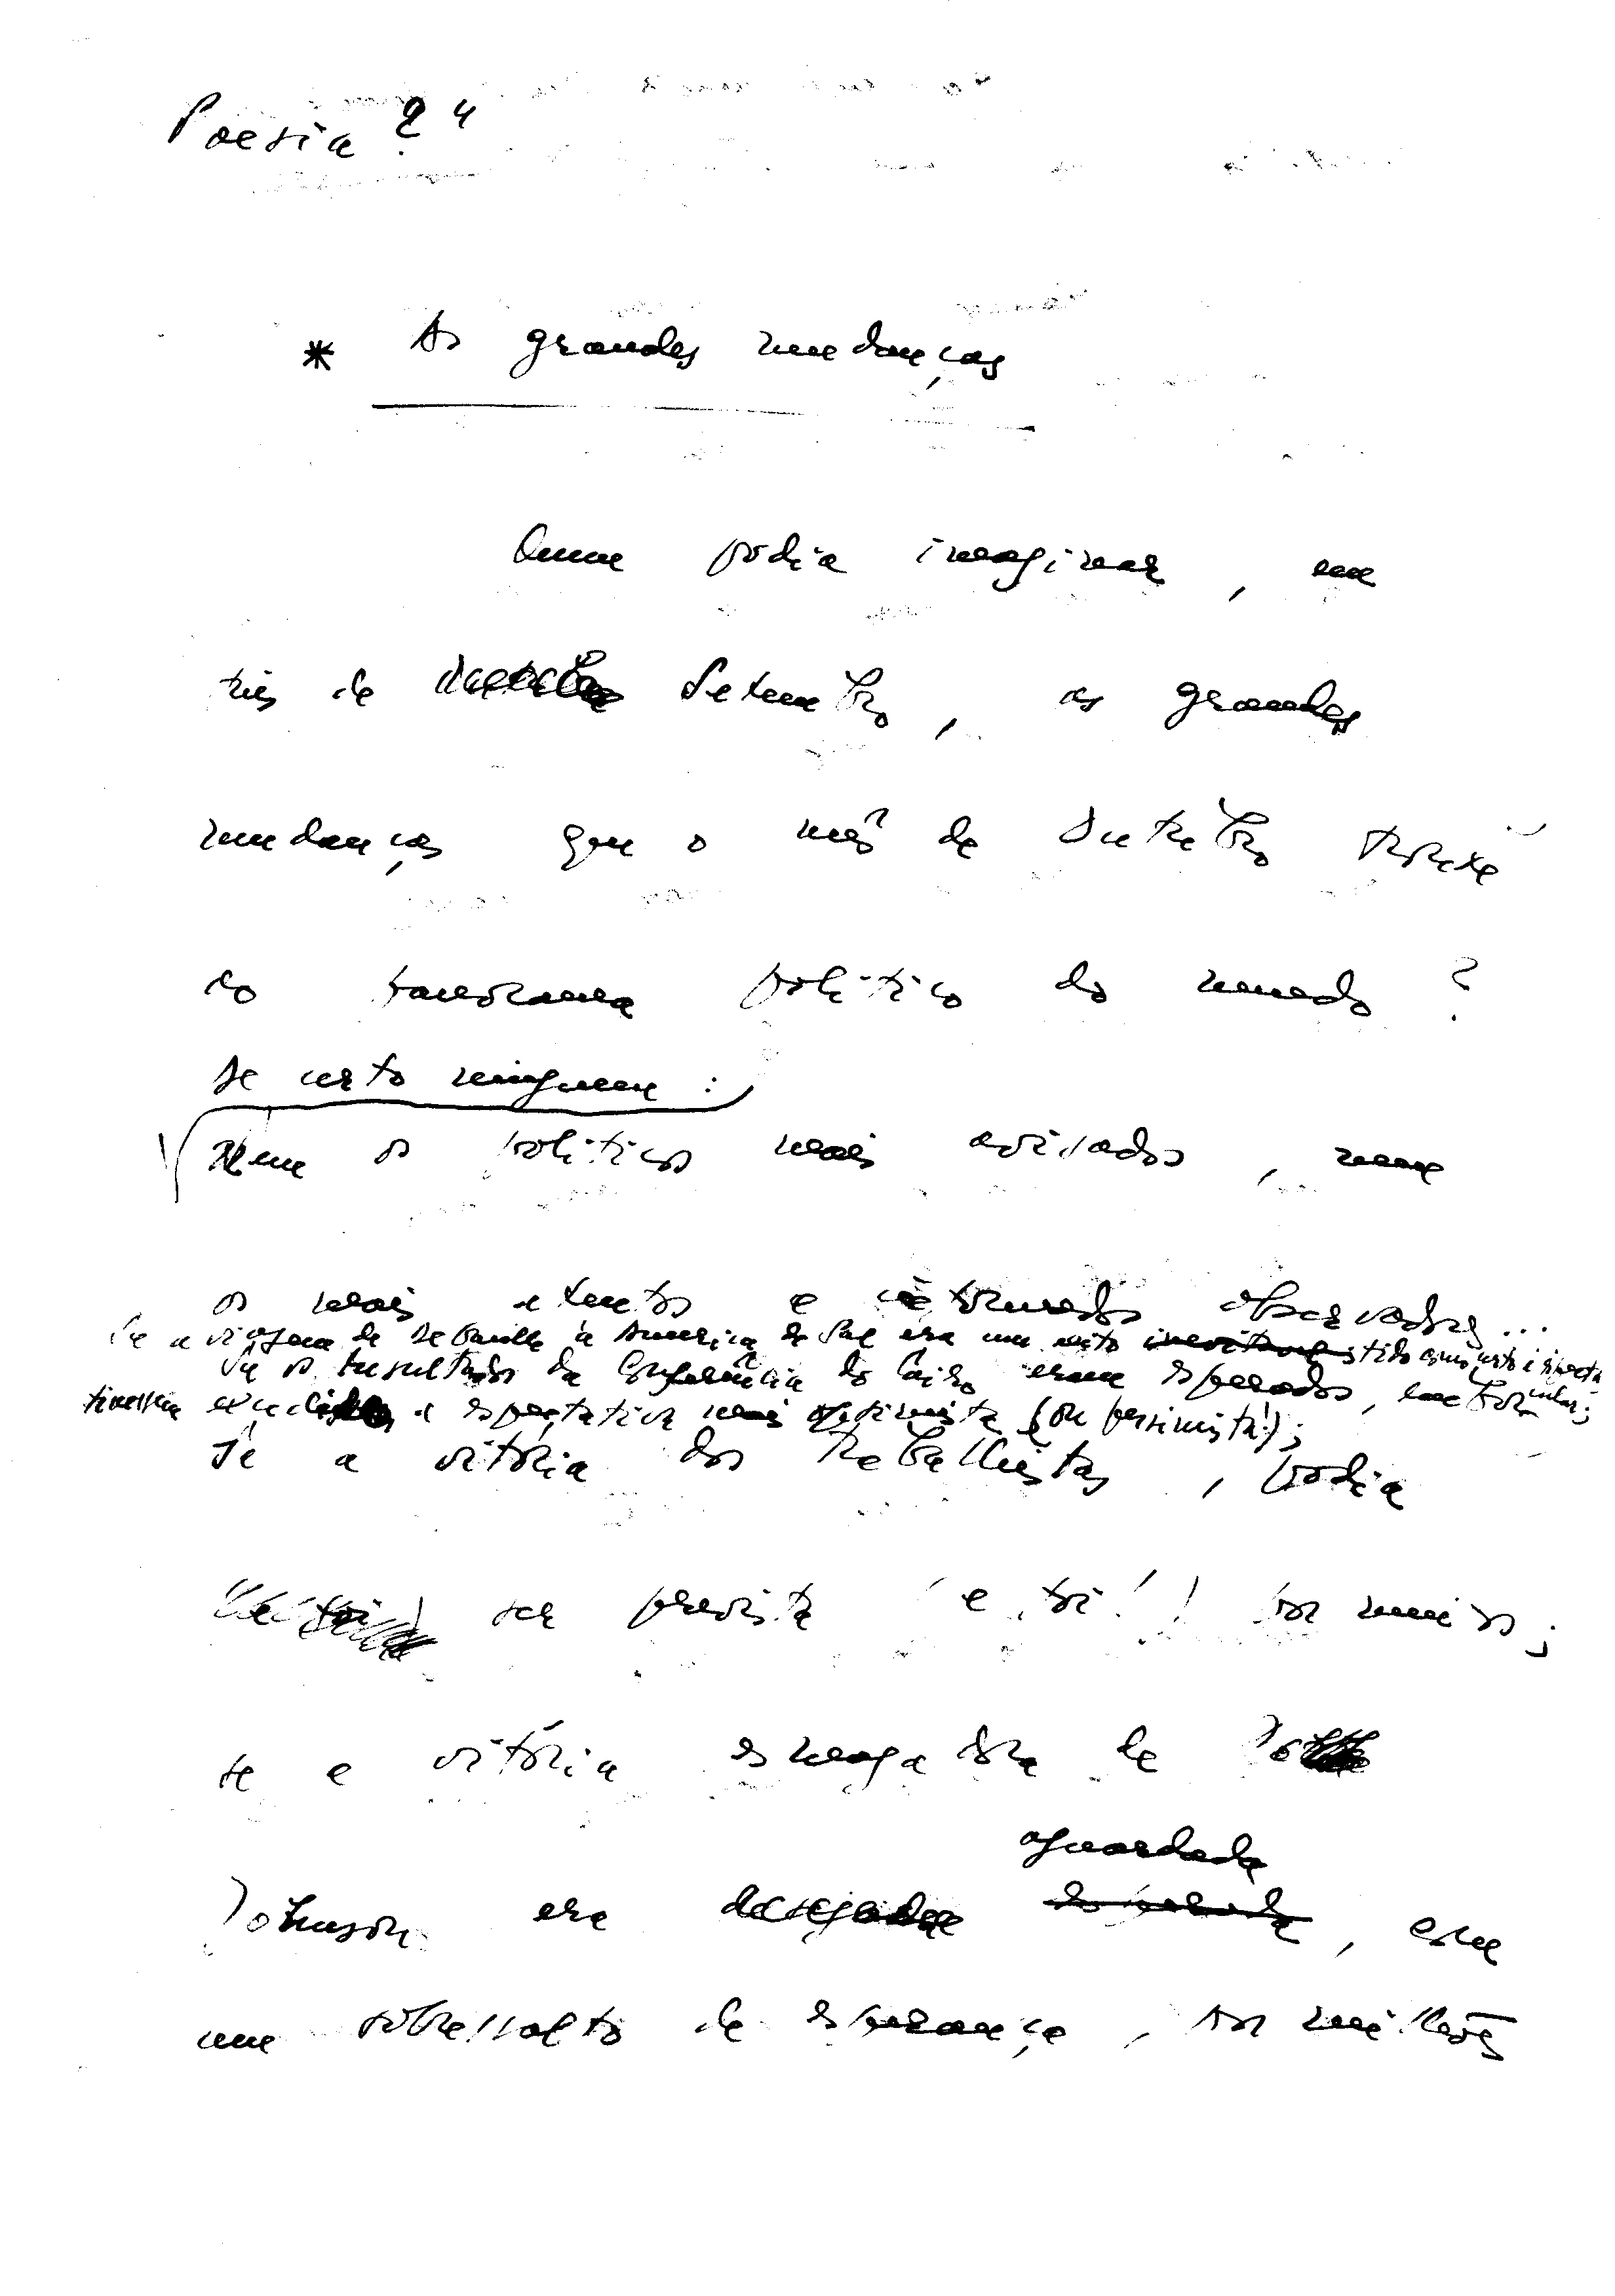 Poesia? 4
* As grandes mudanças
Quem podia imaginar, em
três de Setembro, as grandes
mudanças que o mês de Outubro trouxe
ao panorama político do mundo?
De certo ninguem:
Nem os políticos mais avisados, nem
os mais atentos e informados observadores...
Se a viagem de De Gaulle à America do Sul era um acto tido como certo e
Se os resultados da Conferência do Cairo eram esperados, embora
tivessem excedido a espectativa mais optimista (ou pessimista!);
Se a vitória dos trabalhistas, podia
ser prevista (e foi!) por muitos;
se a vitória esmagadora de
Johnson era desejada aguardada, com
um sobressalto de esperança, por milhões